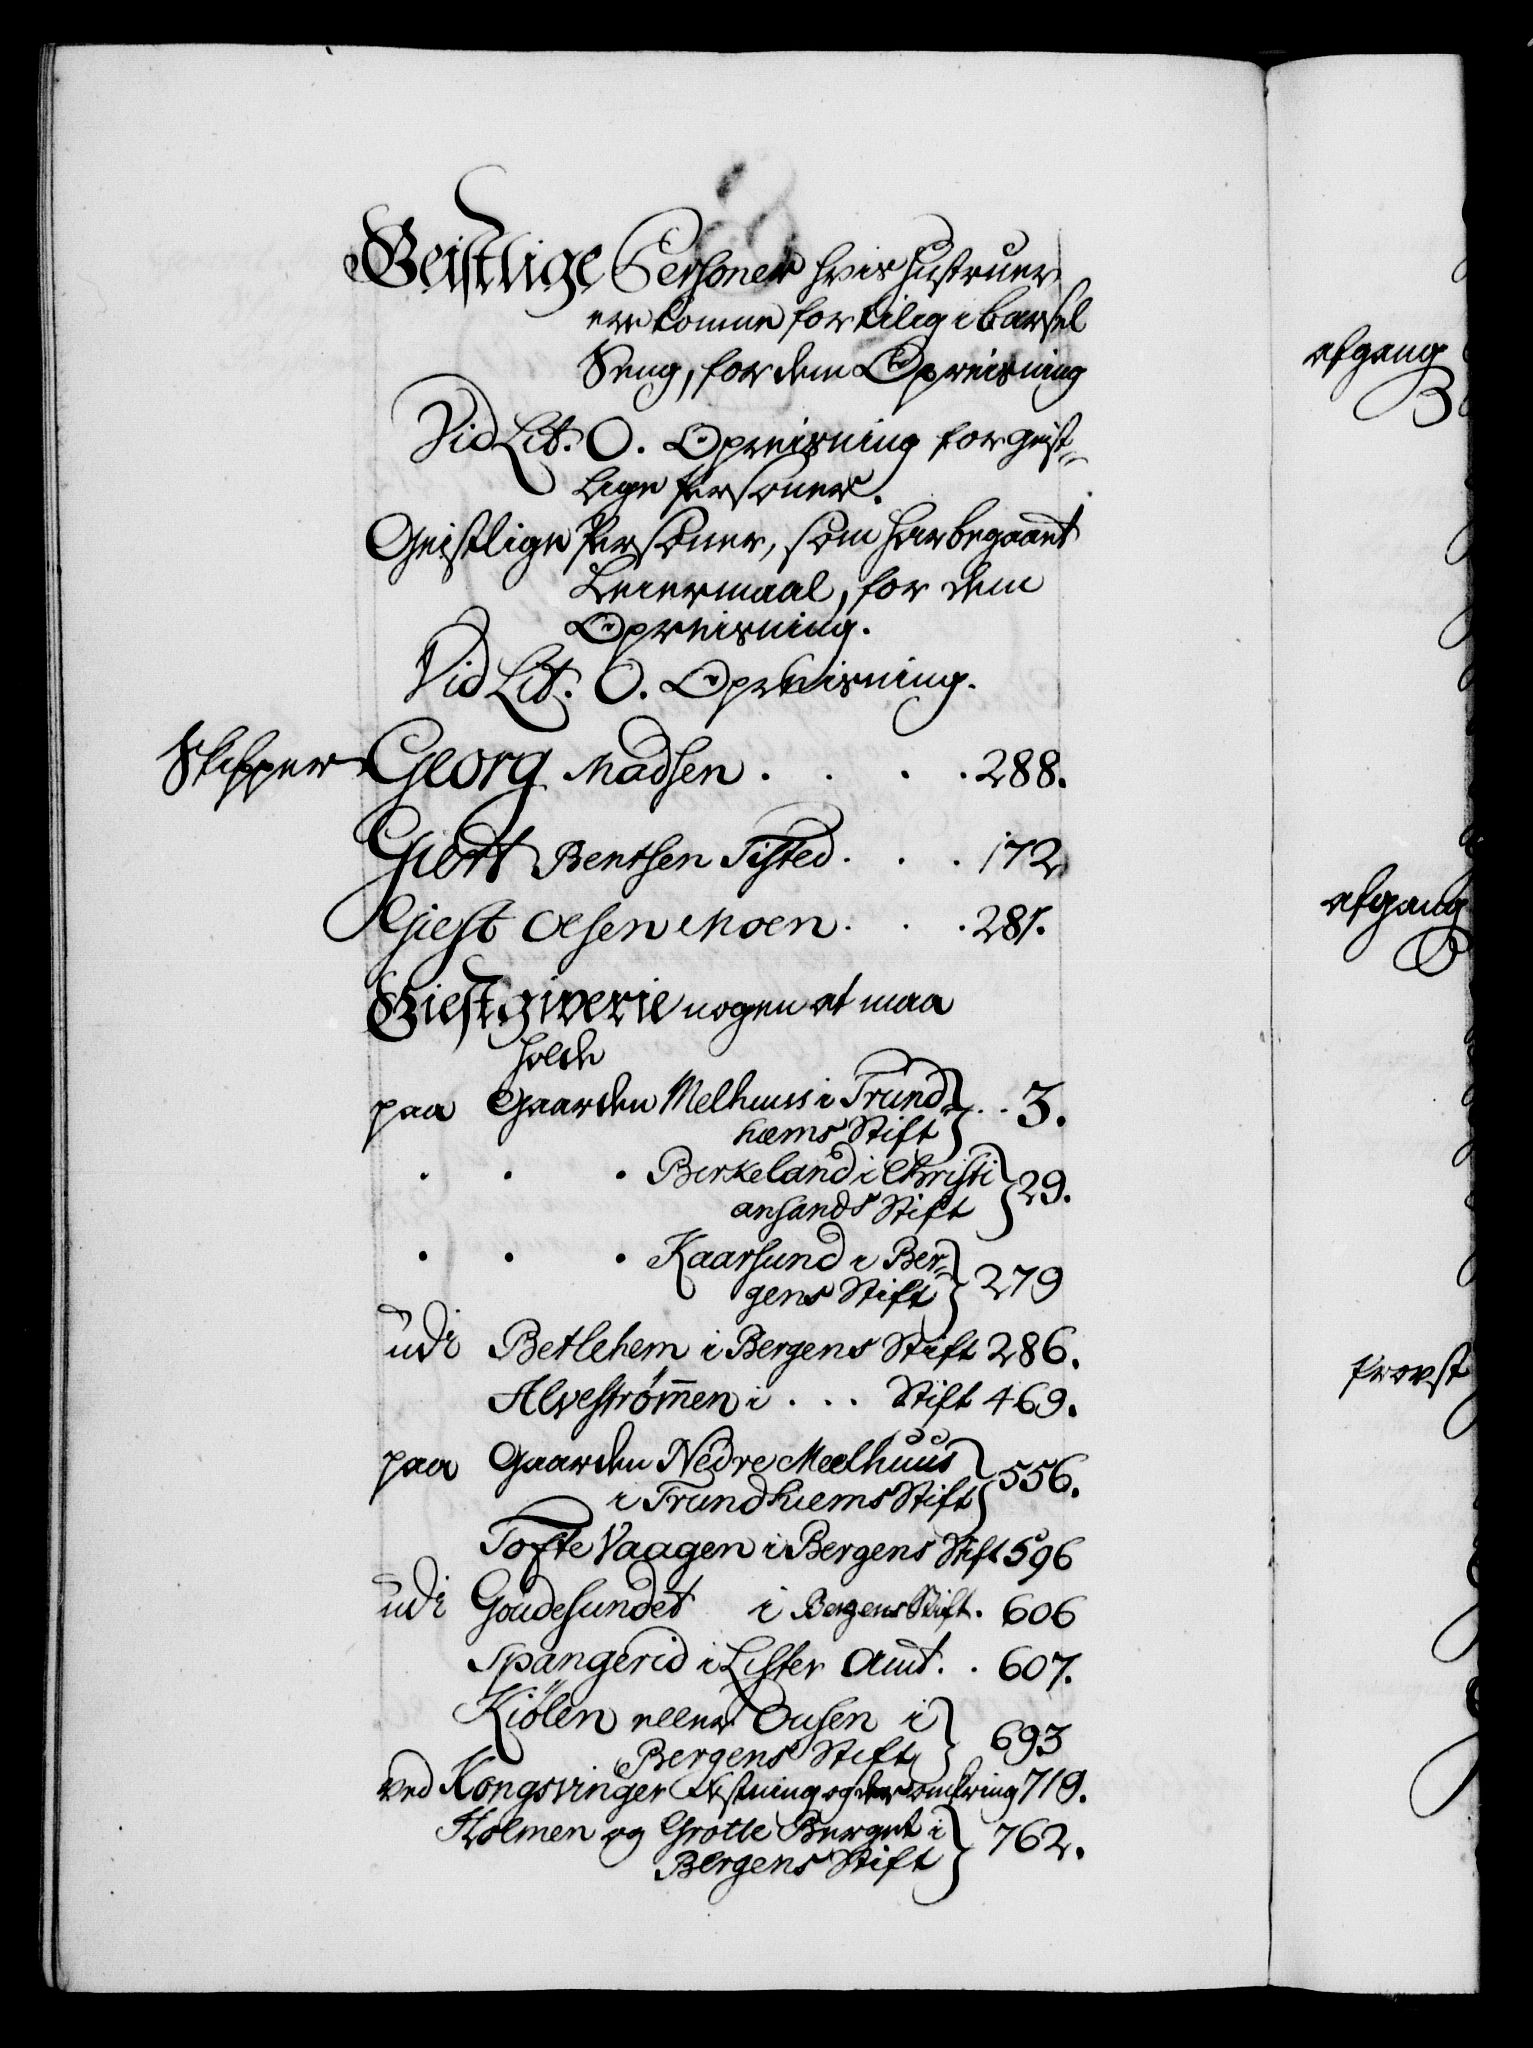 Geistlige Personer hvis Hustruer
ere komne for tilig i barsel
Seng, for dem Opreisning
Vid Lit. O. Opreisning for geist-
lige Personer.
Geistlige Personer, som har begaaet
Leiermaal, for dem
Opreisning.
Vid Lit. O. Opreisning.
Skipper Georg Madsen . . . . 288.
Giert Bentsen Tisted . . . 172
Giest Olsen Moen . . . 281.
Giestgiverie nogen at maa
holde
paa Gaarden Melhuus i Trund
hiems Stift } . . 3.
. . . Birkeland i Christi
ansands Stift } 29.
. . . Kaarsund i Ber-
gens Stift } 279
udi Betlehem i Bergens Stift 286.
Alvestrømmen i . . . Stift 469.
paa Gaarden Nedre Meelhuus
i Trundhiems Stift } 556.
Tofte Vaagen i Bergens Stift 596
udi Goudesundet i Bergens Stift. 606
Spangerid i Lister Amt. . 607.
Kiölen eller Ousen i
Bergens Stift } 693
ved Kongsvinger Festning og der omkring 719.
Holmen og Grotle Berget i
Bergens Stift } 762.
afgang
afgang
Provst